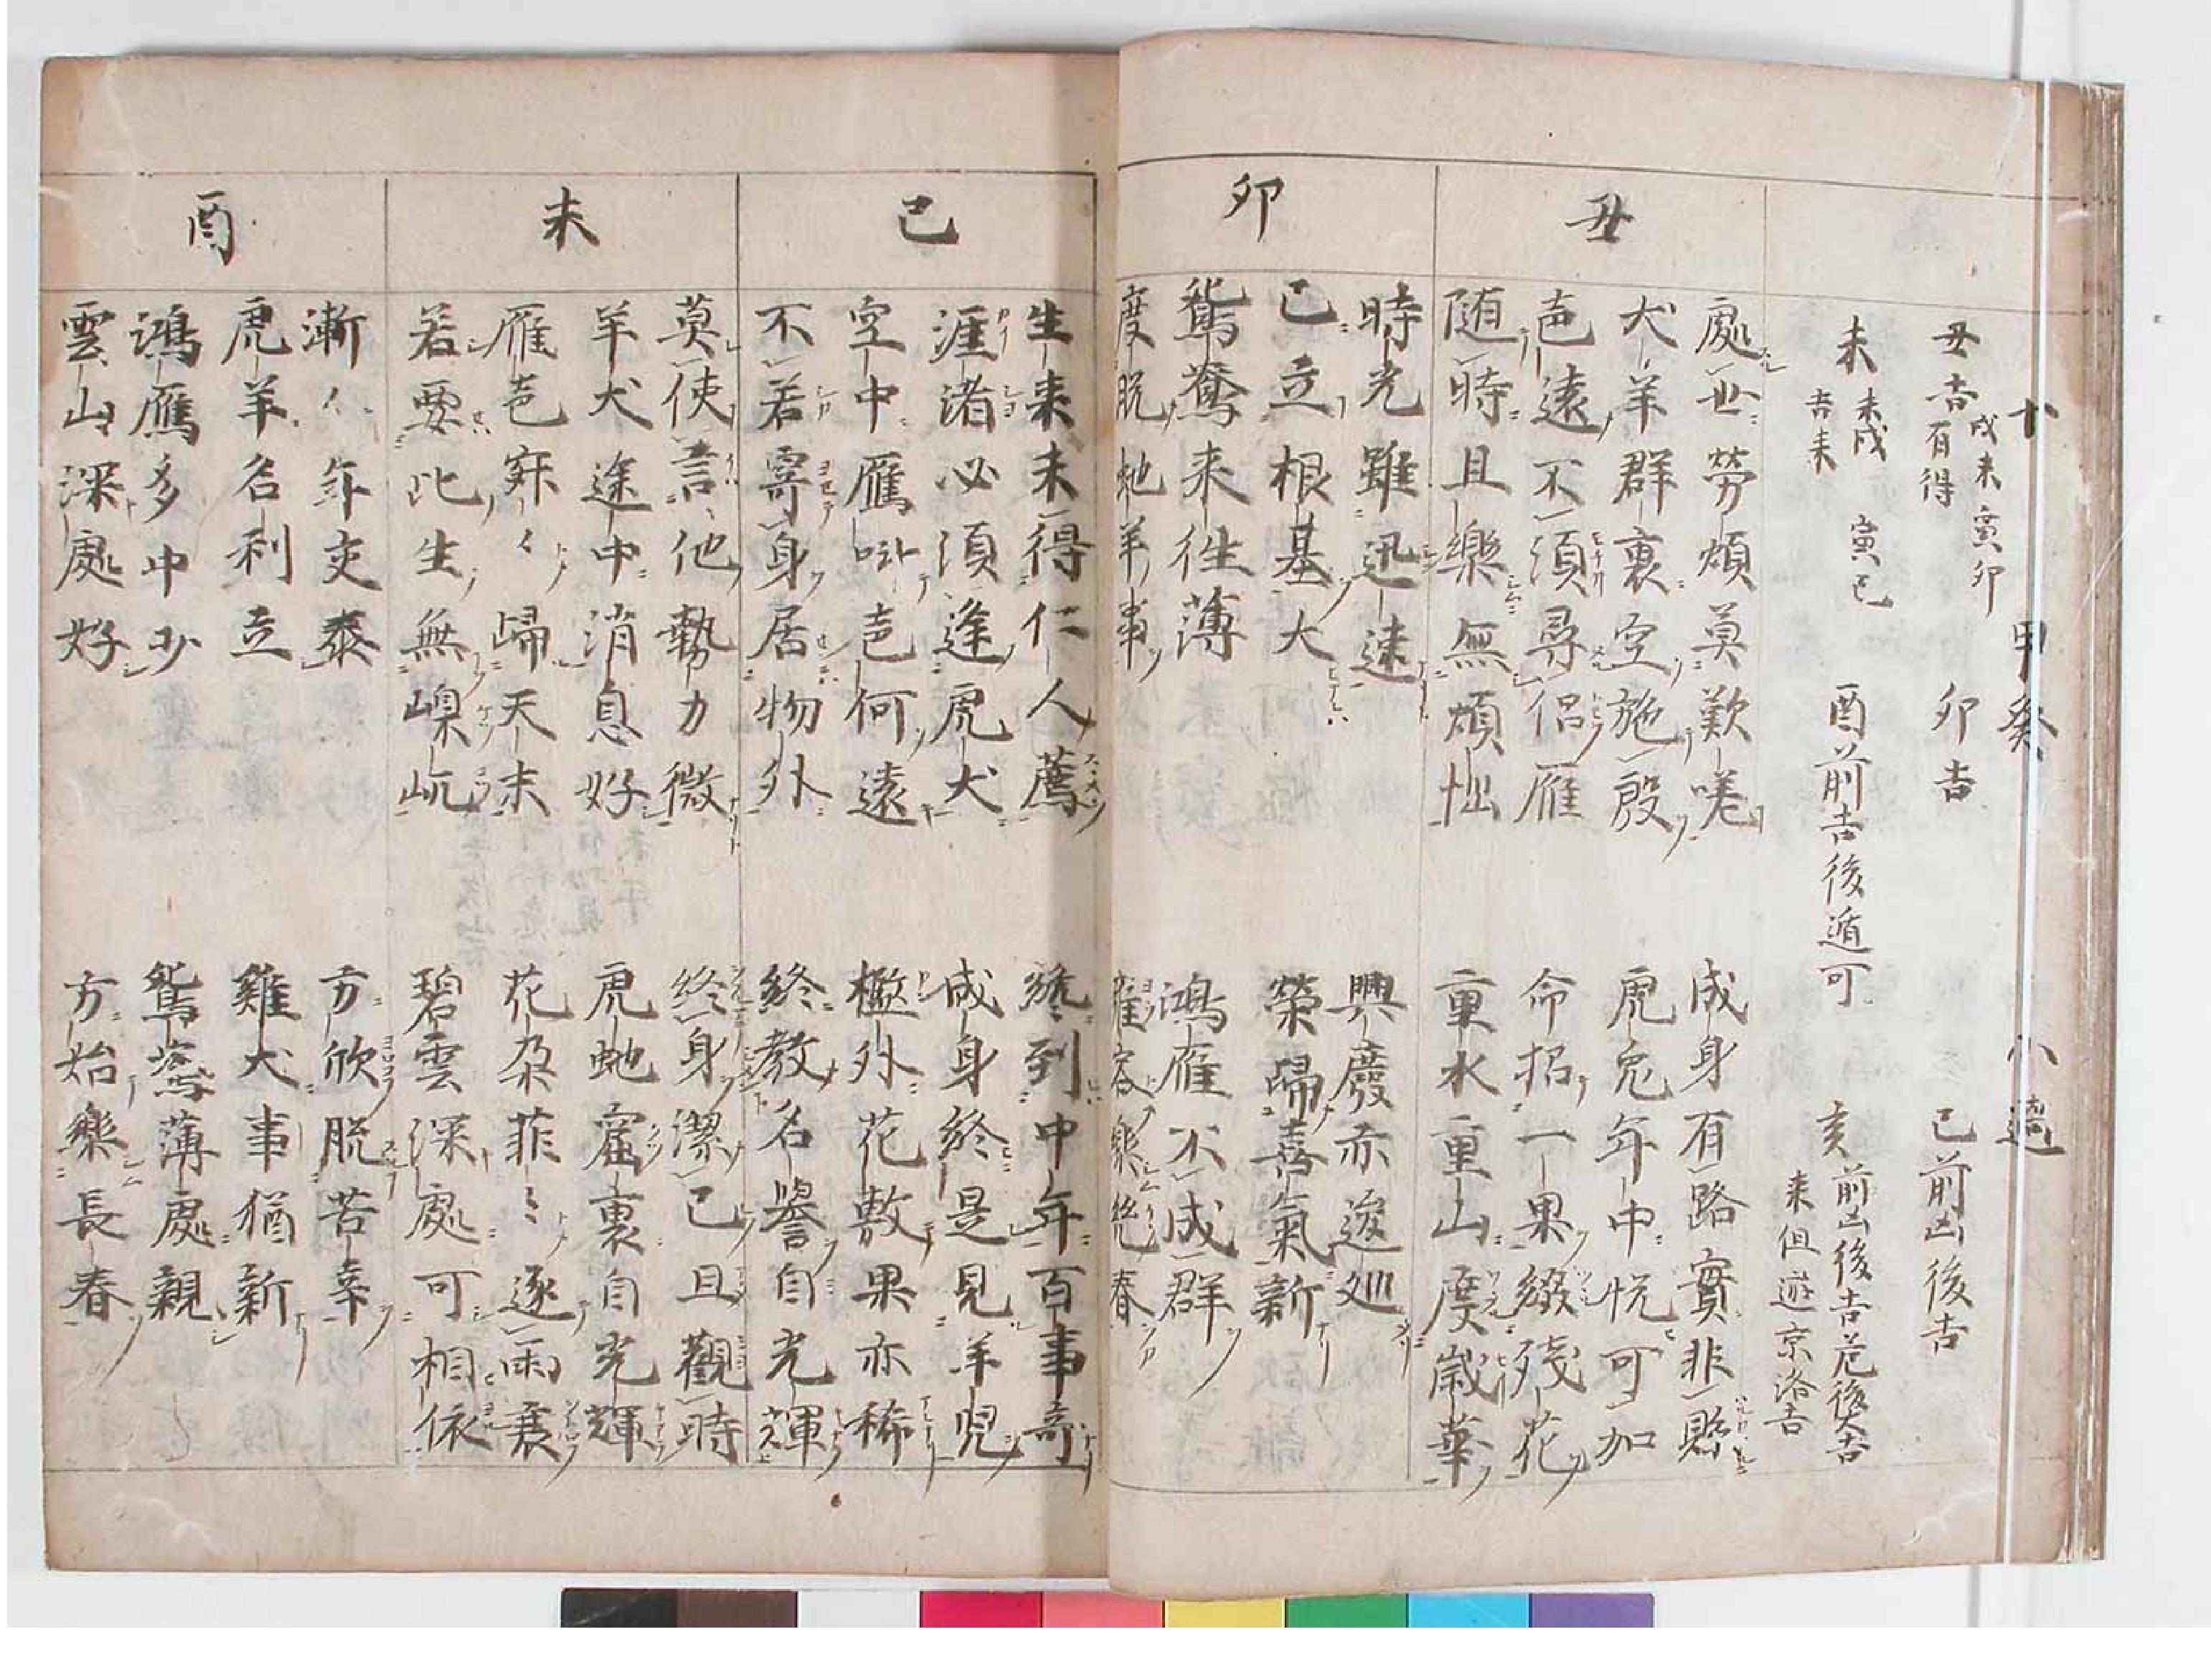 十 甲癸 小過
丑吉 戌未 寅卯 卯吉 巳前凶後吉
百得
未 未戌 寅巳 酉前吉後遁可 亥 前凶後吉危後大吉
吉来 来但遊京洛吉
丑
處世労煩莫歎嗟 成身有路實非懸
犬羊群裏空施殷 虎兔年中悦可加
声遠不須尋侶雁 命招一果綴残花
随時且樂無煩拙 重水重山度歳華
卯
時光雖迅速 興廢亦逡廵
已立根基大 榮歸喜氣新
鴛鴦来往薄 鴻雁不成群
度脱虵羊事 雍容樂晩春
巳
生来未得仁人薦 終到中年百事奇
涯渚必須逢虎犬 成身終是見羊児
空中雁叫声何遠 檻外花敷果亦稀
不若寄身居物外 終教名譽自光輝
未
莫使言他勢力微 終身潔己且觀時
羊犬途中消息好 虎虵窟裏自光輝
雁声寐々歸天末 花朶菲〻逐雨衰
若要此生無嵲屼 碧雲深處可相依
酉
漸々年交泰 方欣脱苦辛
虎羊名利立 雞犬事猶新
鴻鴈多中少 鴛鴦薄處親
雲山深處好 方始樂長春